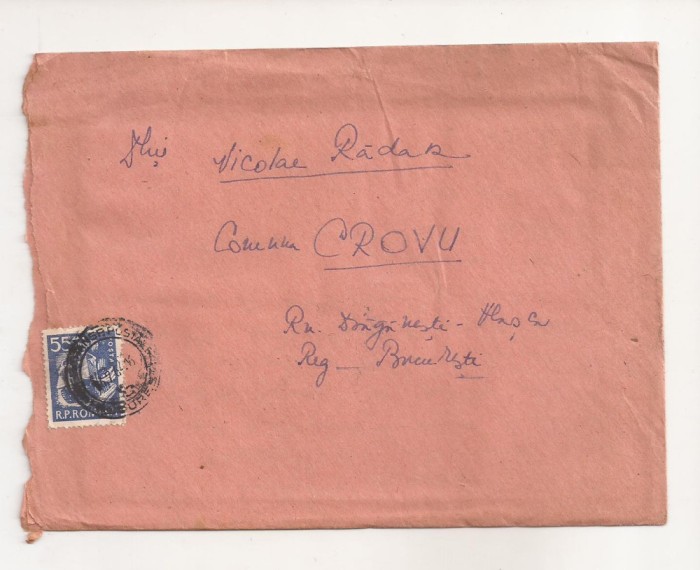 Dlui Nicolae Rădan
Comuna CROVU
Rn. Drăgănești - Vlașca
Reg - București
55
R.P.ROM